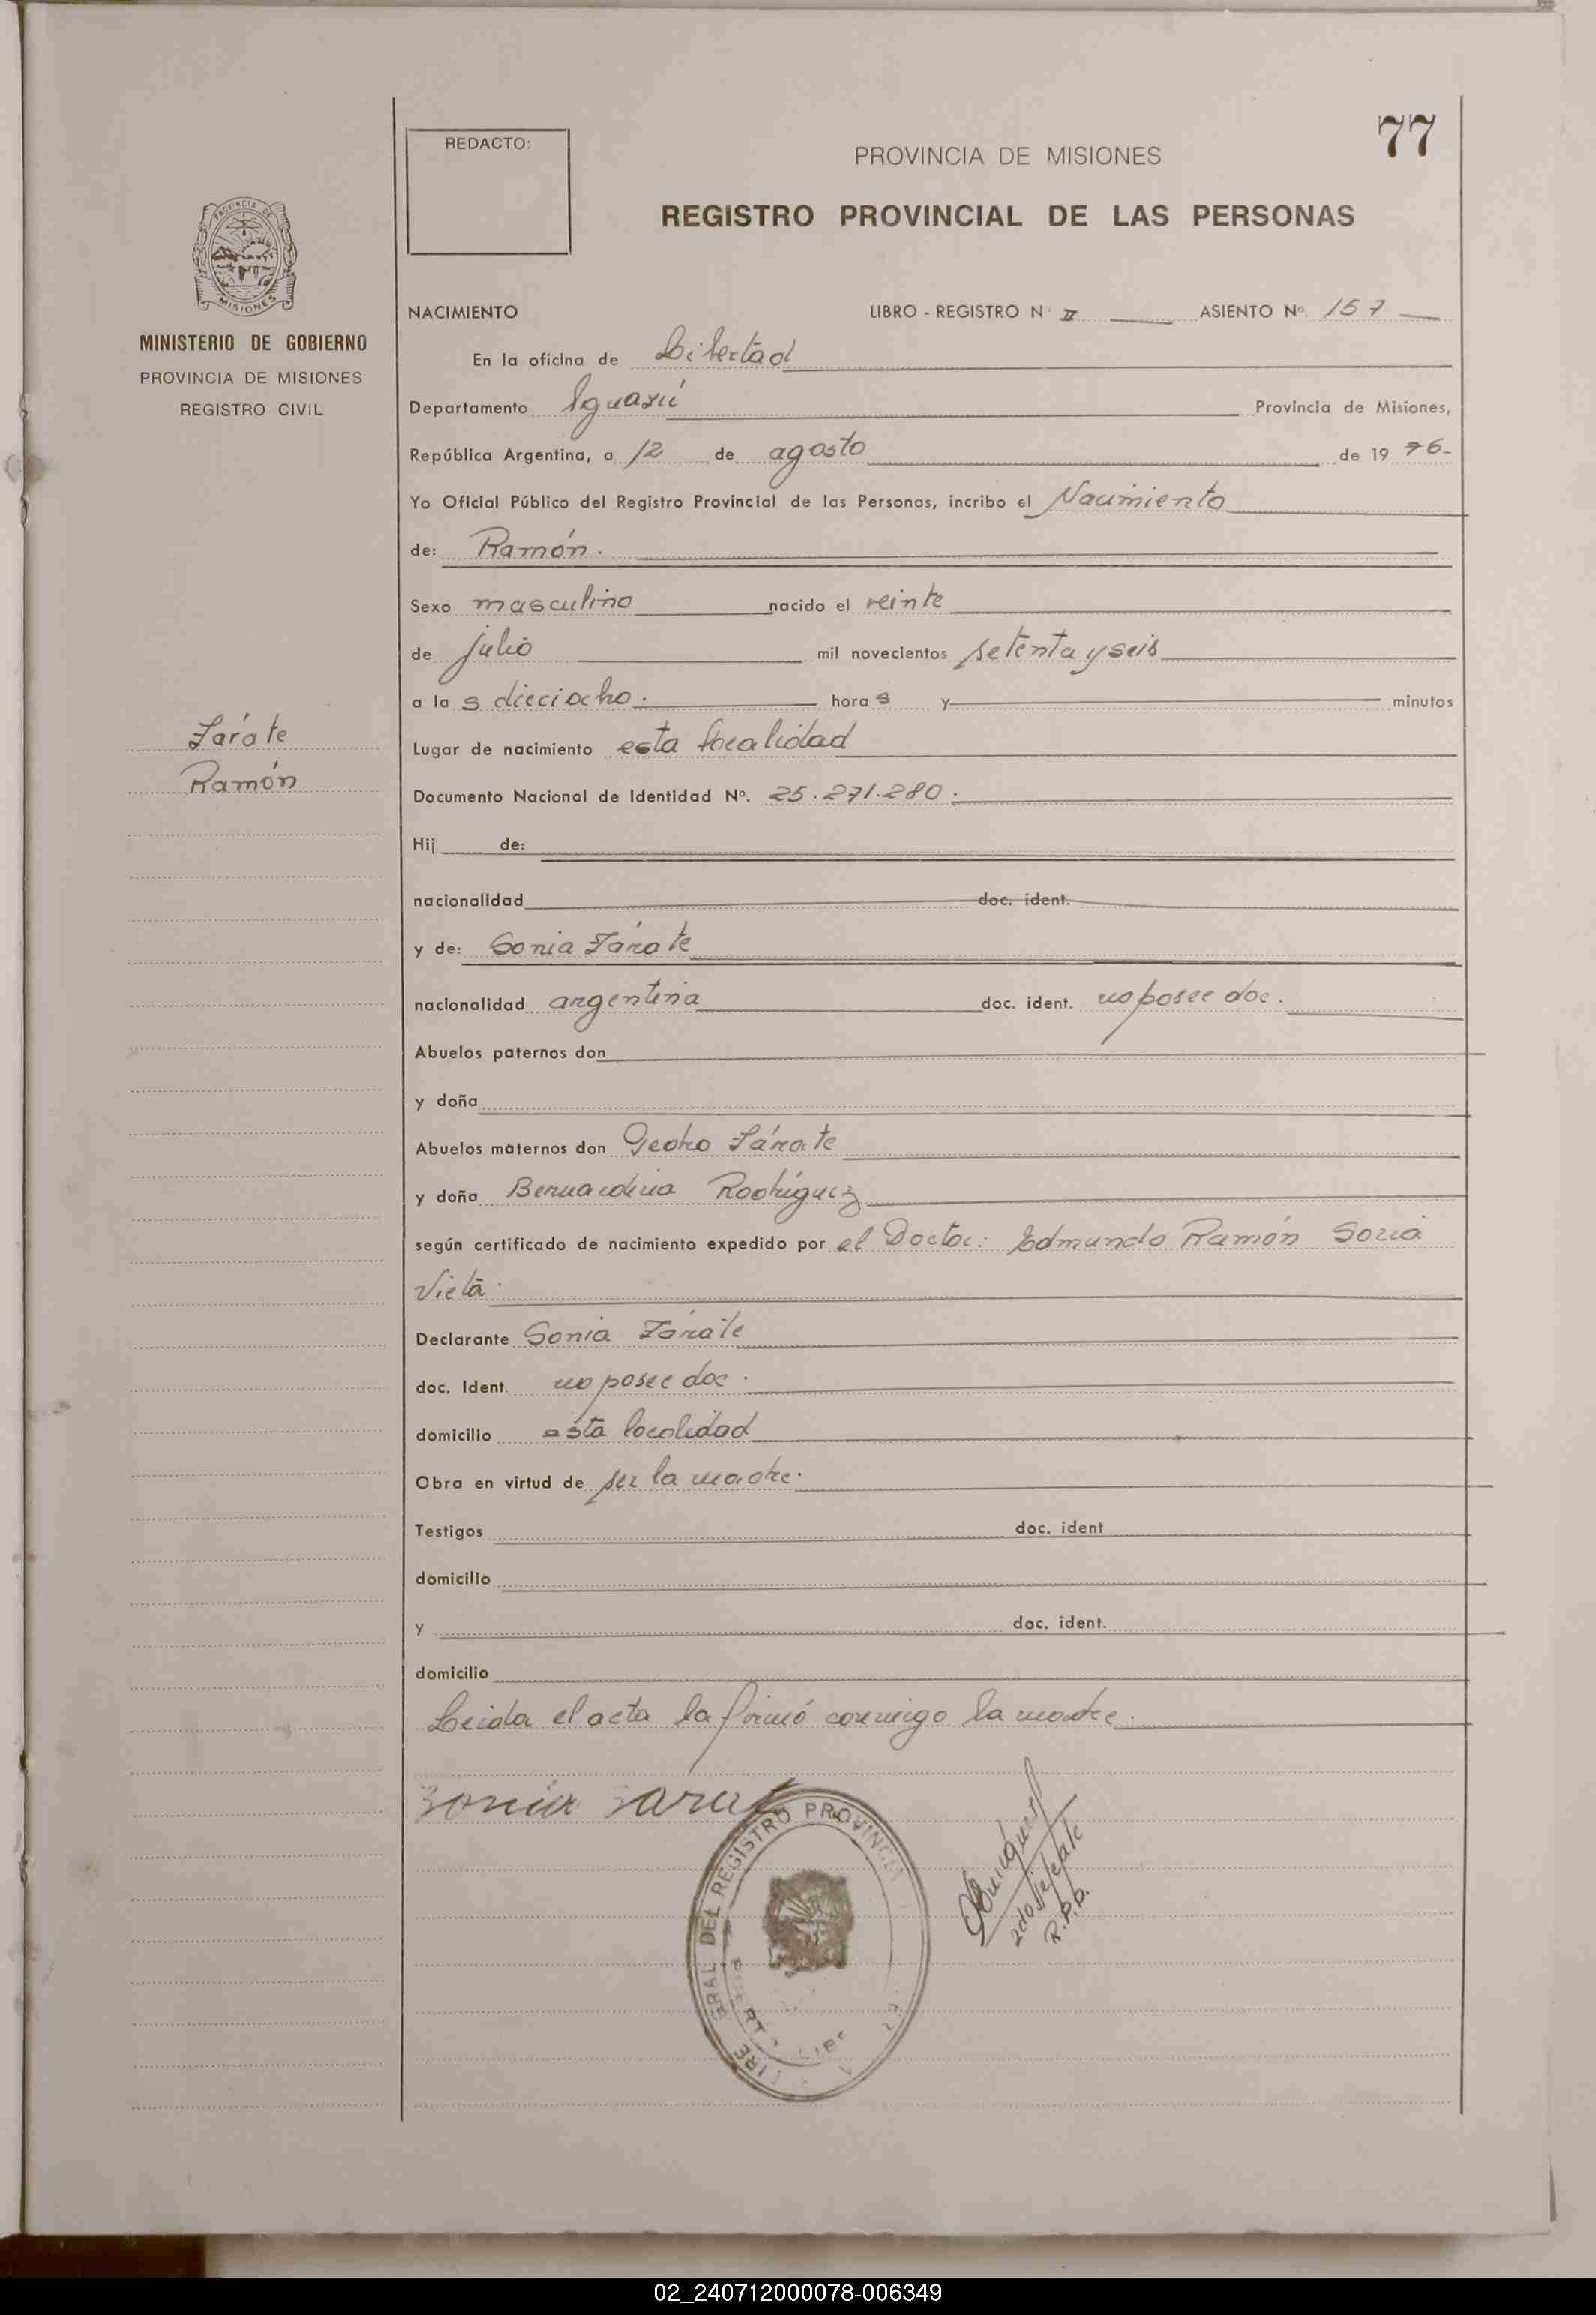 77
REDACTO:
PROVINCIA DE MISIONES
REGISTRO PROVINCIAL DE LAS PERSONAS
PROVINCIA DE
MISIONES
MINISTERIO DE GOBIERNO
PROVINCIA DE MISIONES
REGISTRO CIVIL
NACIMIENTO LIBRO - REGISTRO Nº II ASIENTO Nº. 157
En la oficina de Libertad
Departamento Iguazú Provincia de Misiones,
República Argentina, a 12 de agosto de 19 76-
Yo Oficial Público del Registro Provincial de las Personas, incribo el Nacimiento
de: Ramón.
Sexo masculino nacido el veinte
de julio mil novecientos setenta y seis
a la s dieciocho. hora s y minutos
Zárate
Ramón
Lugar de nacimiento esta localidad
Documento Nacional de Identidad Nº. 25.271.280.
Hij de:
nacionalidad doc. ident.
y de: Sonia Zárate
nacionalidad argentina doc. ident. no posee doc.
Abuelos paternos don
y doña
Abuelos maternos don Pedro Zárate
y doña Bernardina Rodríguez
según certificado de nacimiento expedido por el Doctor: Edmundo Ramón Soria
Vieta.
Declarante Sonia Zárate
doc. Ident. no posee doc.
domicilio esta localidad
Obra en virtud de ser la madre.
Testigos doc. ident
domicilio
y doc. ident.
domicilio
Leida el acta la firmó conmigo la madre.
Sonia Zarate
GRAL DEL REGISTRO PROVINCIAL
R.P.P.
02_240712000078-006349